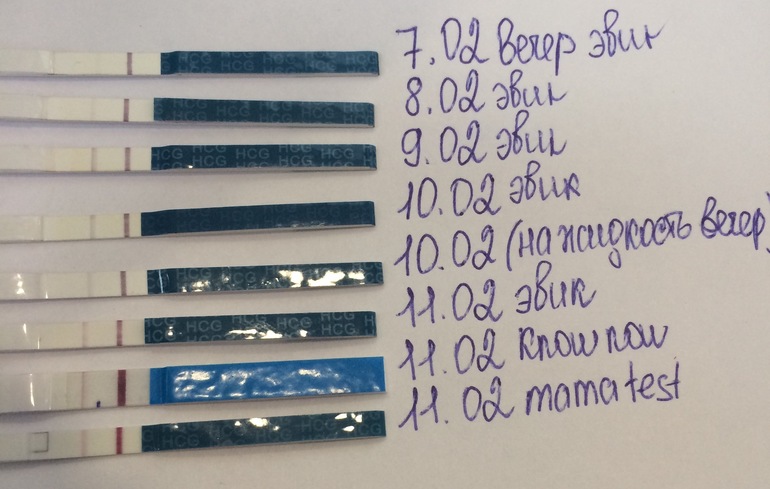 7.02 вечер эвик
8.02 эвик
9.02 эвик
10.02 эвик
10.02 (на жидкость вечер)
11.02 эвик
11.02 know now
11.02 mama test
HCG HCG HCG HCG
HCG HCG HCG
HCG HCG HCG HCG
HCG HCG HCG
HCG HCG
HCG
HCG HCG